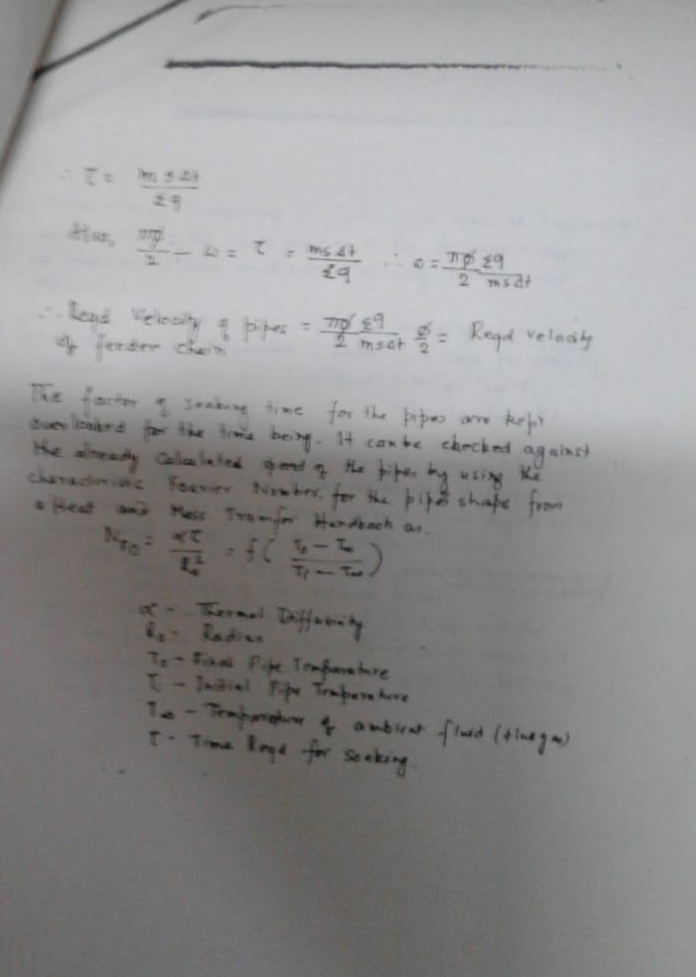 ∴ τ = m s Δt / Σq
thus, πø/2 - ω = τ = msΔt / Σq ∴ ω = πø/2 Σq/msΔt
∴ Reqd Velocity of pipes = πø/2 Σq/msΔt ø/2 = Reqd velocity
of feeder chain
The factor of soaking time for the pipes are kept
overlooked for the time being. It can be checked against
the already calculated speed of the pipes by using the
characteristic Fourier Number, for the pipes shape from
a Heat and Mass Transfer Handbook as.
N_FO = ατ / R₀² = f( T₀ - T∞ / Tᵢ - T∞ )
α - Thermal Diffusivity
R₀ - Radius
T₀ - Final Pipe Temperature
Tᵢ - Initial Pipe Temperature
T∞ - Temperature of ambient fluid (flue gas)
τ - Time Reqd for Soaking.